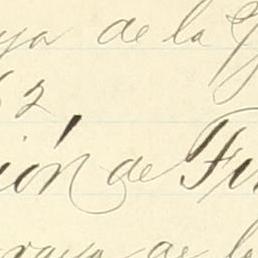 ya de la
62
ión de Fin
raya de la